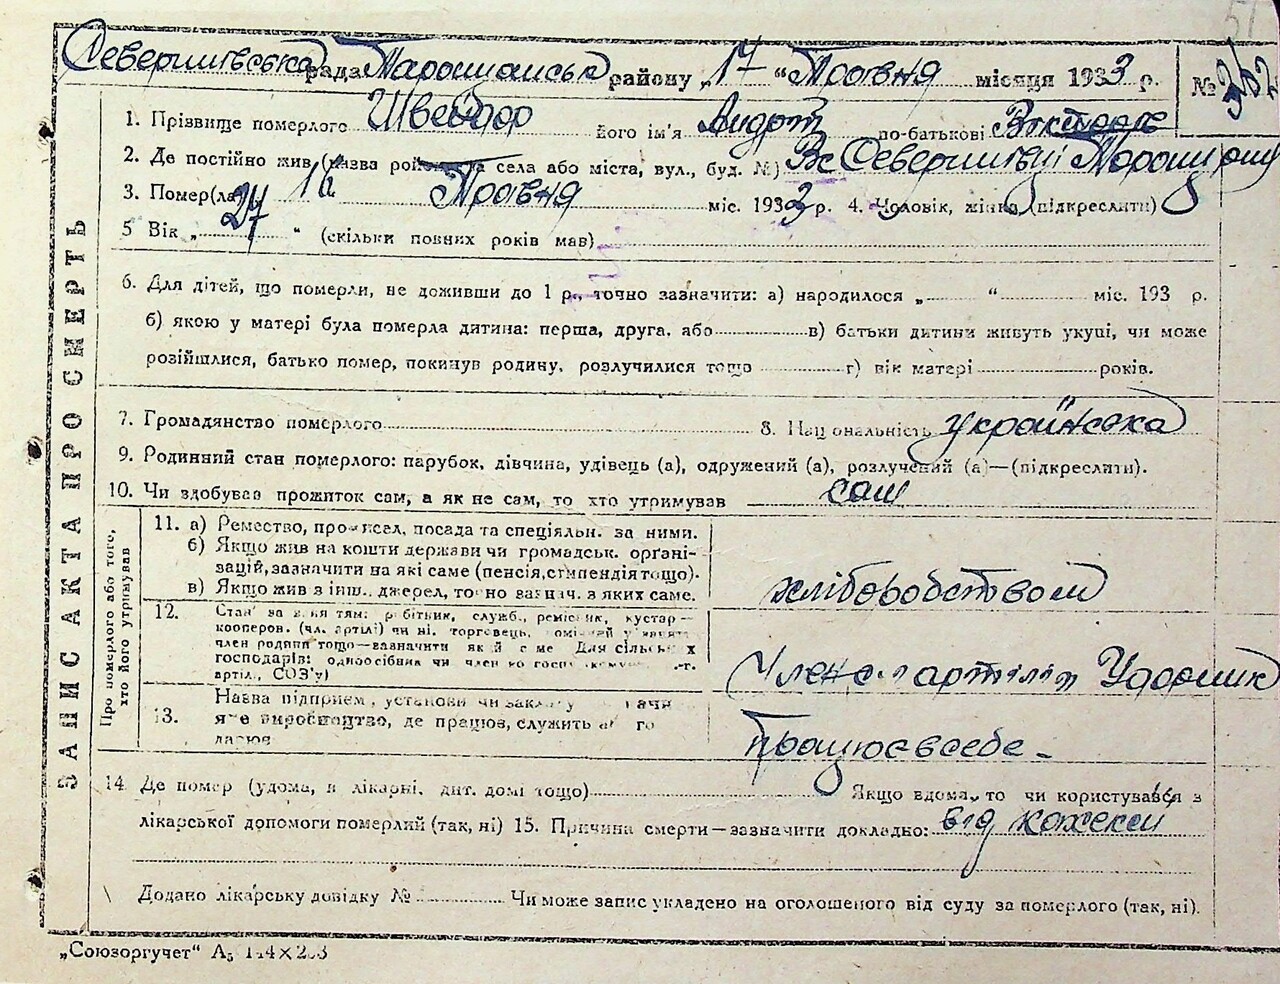 51
Северинівська рада Таращанськ району „17 “ Травня місяця 1933 р. № 362
1. Прізвище померлого Швейдор його ім'я по-батькові
2. Де постійно жив (назва село або міста, вул., буд. №)
3. Помер(ла 1а Травня міс. 1933 р. 4. Чоловік, жінка (підкреслити)
5 Вік „ 27 “ (скільки повних років мав)
6. Для дітей, що померли, не доживши до 1 р., точно зазначити: а) народилося „ “ міс. 193 р.
б) якою у матері була померла дитина: перша, друга, або в) батьки дитини живуть укупі, чи може
розійшлися, батько помер, покинув родину, розлучилися тощо г) вік матері років.
7. Громадянство померлого 8. Національність українська
9. Родинний стан померлого: парубок, дівчина, удівець (а), одружений (а), розлучений (а)—(підкреслити).
10. Чи здобував прожиток сам, а як не сам, то хто утримував сам
ЗАПИС АКТА ПРО СМЕРТЬ
Про померлого або того, хто його утримував
11. а) Ремество, промисел, посада та спеціяльн. за ними.
б) Якщо жив на кошти держави чи громадськ. органі-
зацій, зазначити на які саме (пенсія, стипендія тощо).
в) Якщо жив з інш. джерел, точно зазнач. з яких саме.
хліборобством
12. Стан за робітник, служб., ремісник, кустар—
кооперов. (чл. артілі) чи ні, торговець,
член родини тощо—зазначити Для сільськ х
господарів: одноосібник чи член
артіл., СОЗ'у)
Член с. артіли
13. Назва підприєм., установи чи
виробництво, де працює, служить
працює в себе -
14. Де помер (удома, в лікарні, дит. домі тощо) Якщо вдома, то чи користувався з
лікарської допомоги померлий (так, ні) 15. Причина смерти—зазначити докладно: від кахексії
Додано лікарську довідку № Чи може запис укладено на оголошеного від суду за померлого (так, ні).
„Союзоргучет“ А5